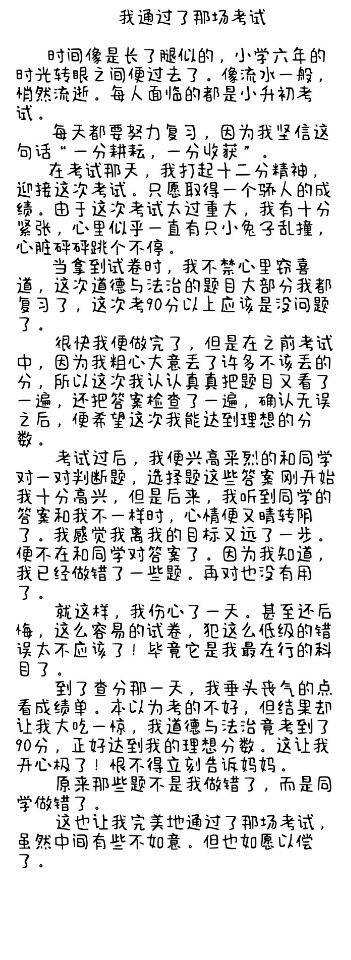 我通过了那场考试
时间像是长了腿似的，小学六年的
时光转眼之间便过去了。像流水一般，
悄然流逝。每人面临的都是小升初考
试。
每天都要努力复习，因为我坚信这
句话“一分耕耘，一分收获”。
在考试那天，我打起十二分精神，
迎接这次考试。只愿取得一个骄人的成
绩。由于这次考试太过重大，我有十分
紧张，心里似乎一直有只小兔子乱撞，
心脏砰砰跳个不停。
当拿到试卷时，我不禁心里窃喜
道，这次道德与法治的题目大部分我都
复习了，这次考90分以上应该是没问题
了。
很快我便做完了，但是在之前考试
中，因为我粗心大意丢了许多不该丢的
分，所以这次我认认真真把题目又看了
一遍，还把答案检查了一遍，确认无误
之后，便希望这次我能达到理想的分
数。
考试过后，我便兴高采烈的和同学
对一对判断题，选择题这些答案刚开始
我十分高兴，但是后来，我听到同学的
答案和我不一样时，心情便又晴转阴
了。我感觉我离我的目标又远了一步。
便不在和同学对答案了。因为我知道，
我已经做错了一些题。再对也没有用
了。
就这样，我伤心了一天。甚至还后
悔，这么容易的试卷，犯这么低级的错
误太不应该了！毕竟它是我最在行的科
目了。
到了查分那一天，我垂头丧气的点
看成绩单。本以为考的不好，但结果却
让我大吃一惊，我道德与法治竟考到了
90分，正好达到我的理想分数。这让我
开心极了！恨不得立刻告诉妈妈。
原来那些题不是我做错了，而是同
学做错了。
这也让我完美地通过了那场考试，
虽然中间有些不如意。但也如愿以偿
了。